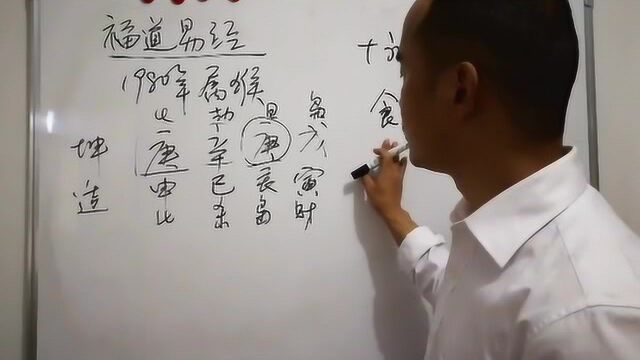 福道易经
1980年 属猴
比 劫 日 枭
坤造
庚 辛 庚 戊
申 巳 辰 寅
比 杀 枭 财
十
食